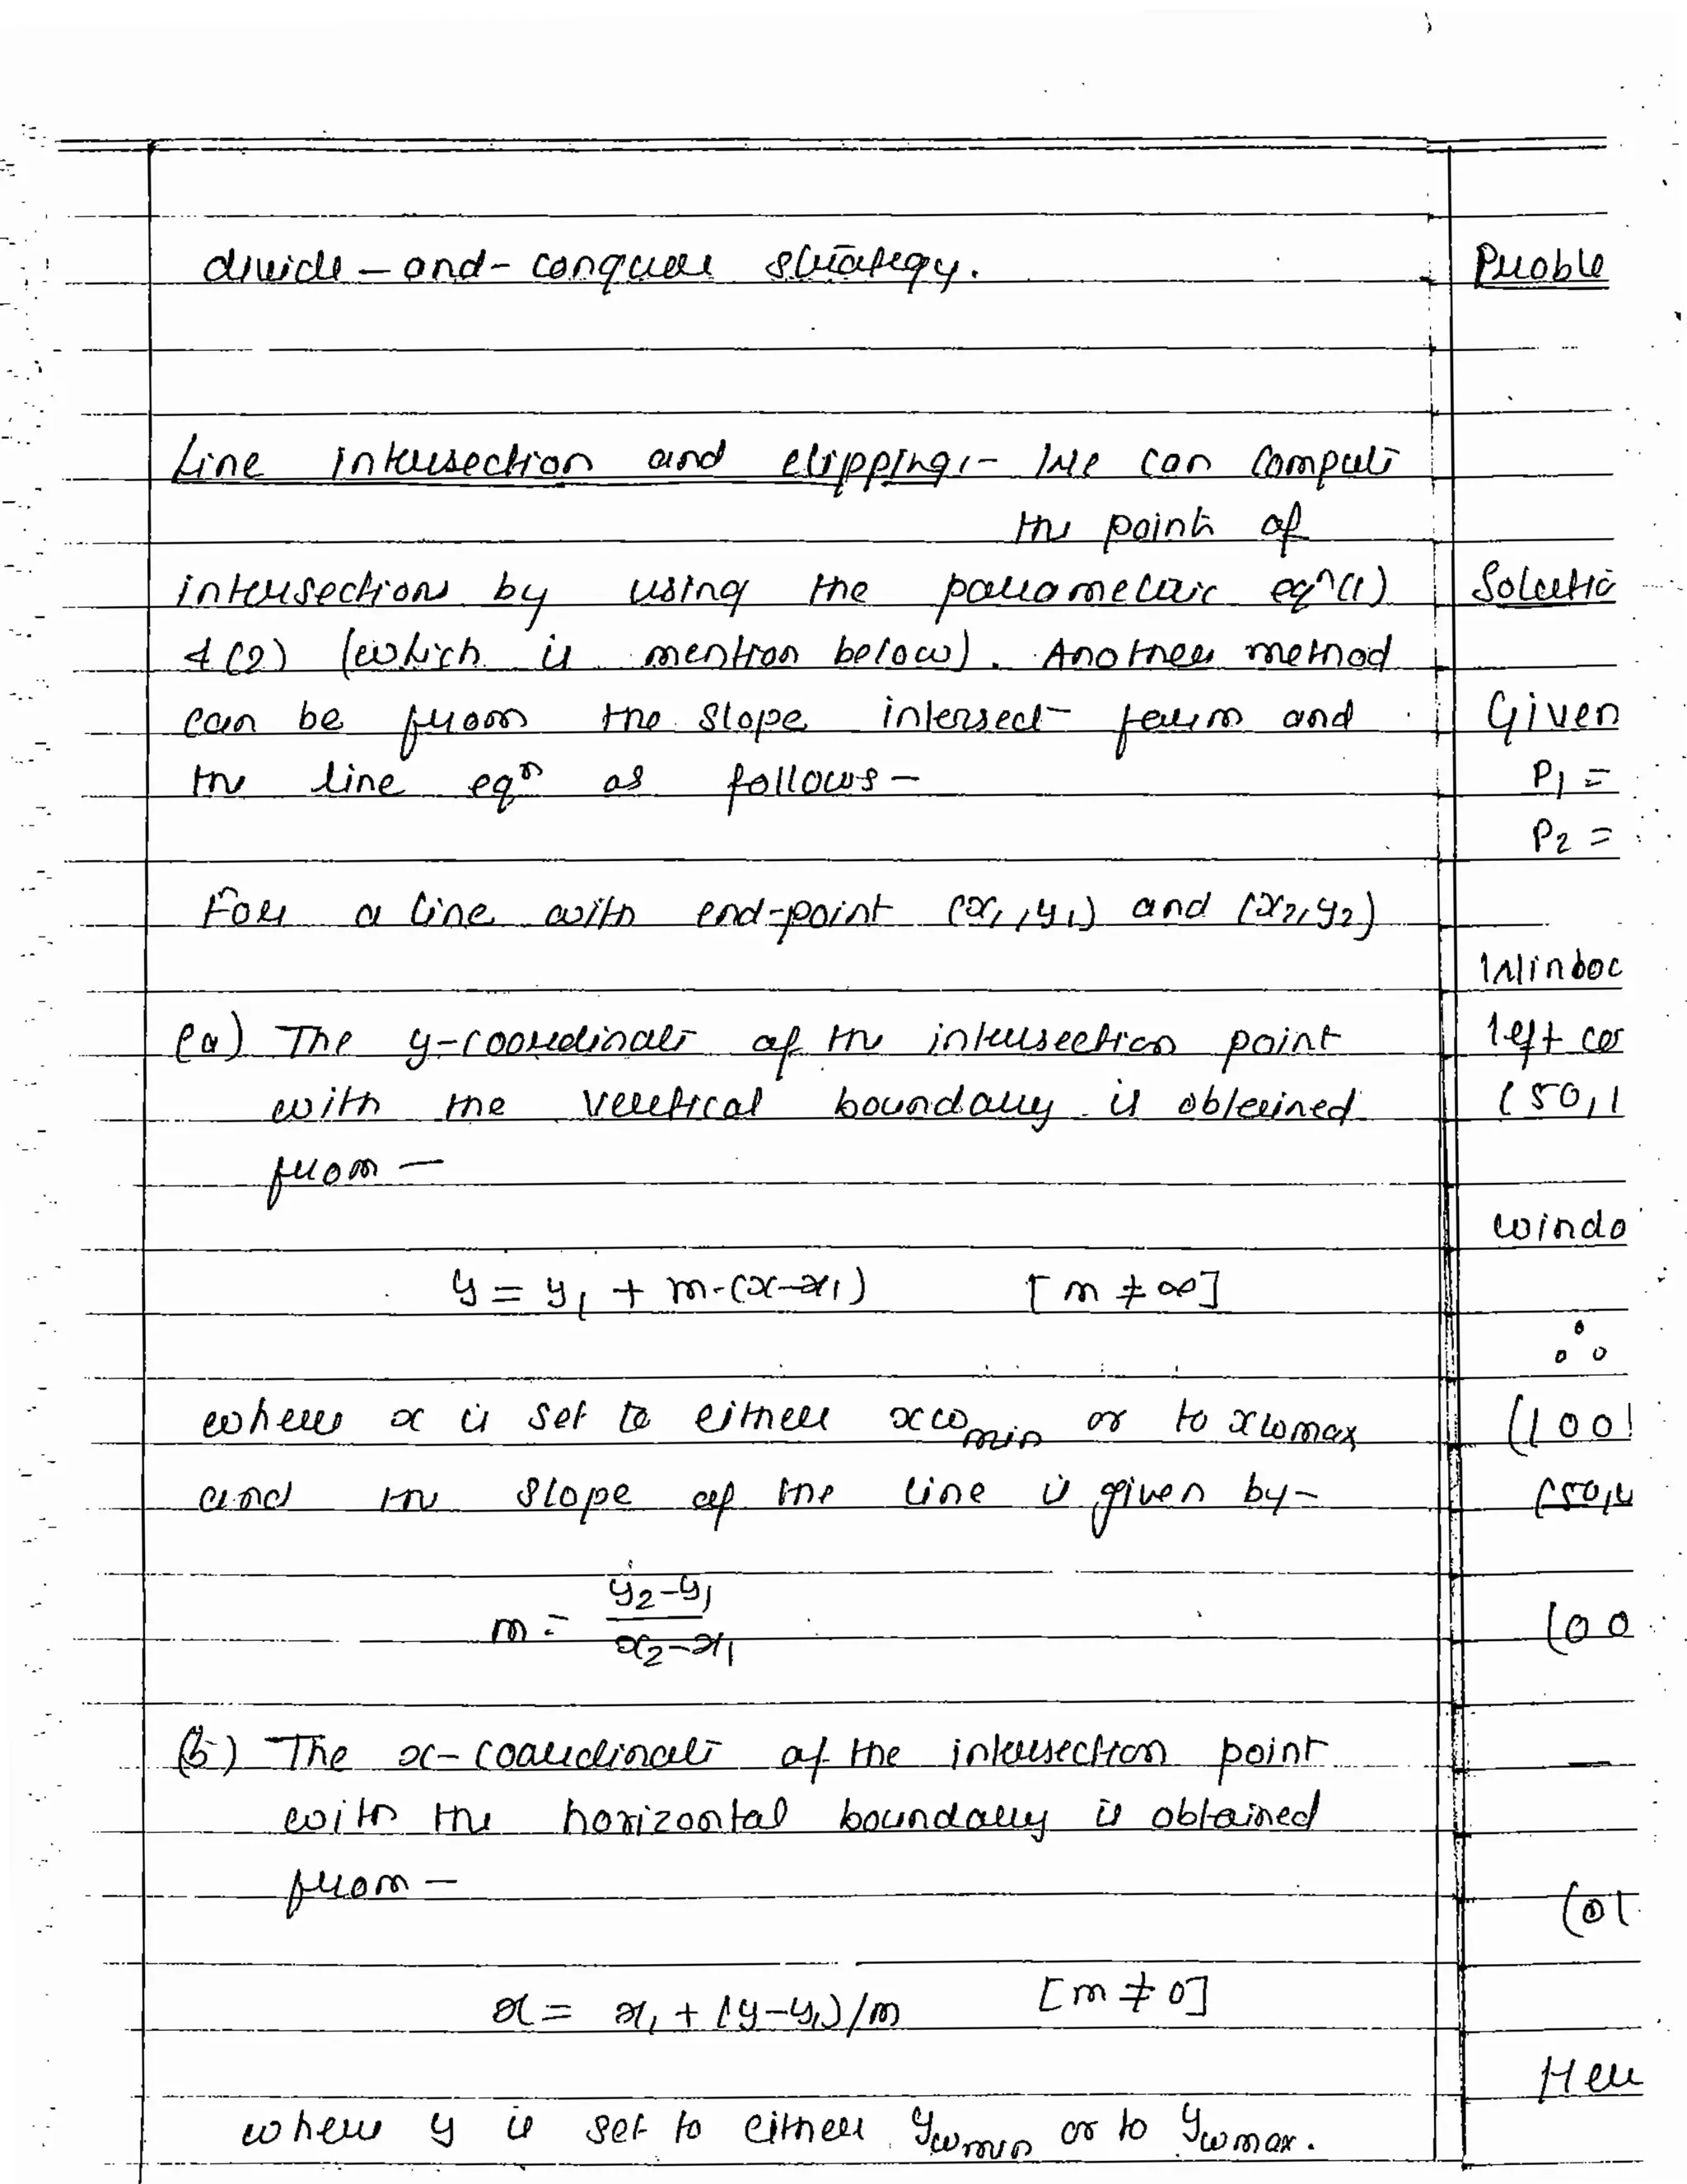 divide-and-conquer strategy.
Line intersection and clipping:- We can compute
the point of
intersections by using the parametric eqⁿ(1)
& (2) (which is mention below). Another method
can be from the slope intersect form and
the line eqⁿ as follows-
For a line with end-point (x₁,y₁) and (x₂,y₂)
(a) The y-coordinate of the intersection point
with the vertical boundary is obtained
from -
y = y₁ + m.(x-x₁) [m ≠ ∞]
where x is set to either xw_min or to xwmax
and the slope of the line is given by-
m = (y₂-y₁)/(x₂-x₁)
(b) The x-coordinate of the intersection point
with the horizontal boundary is obtained
from -
x = x₁ + (y-y₁)/m [m ≠ 0]
where y is set to either y_wmin or to y_wmax.
Proble
Solutio
Given
P₁ =
P₂ =
Window
left cor
(50,1
windo
∴
(100
(50,4
(00
(01
Her